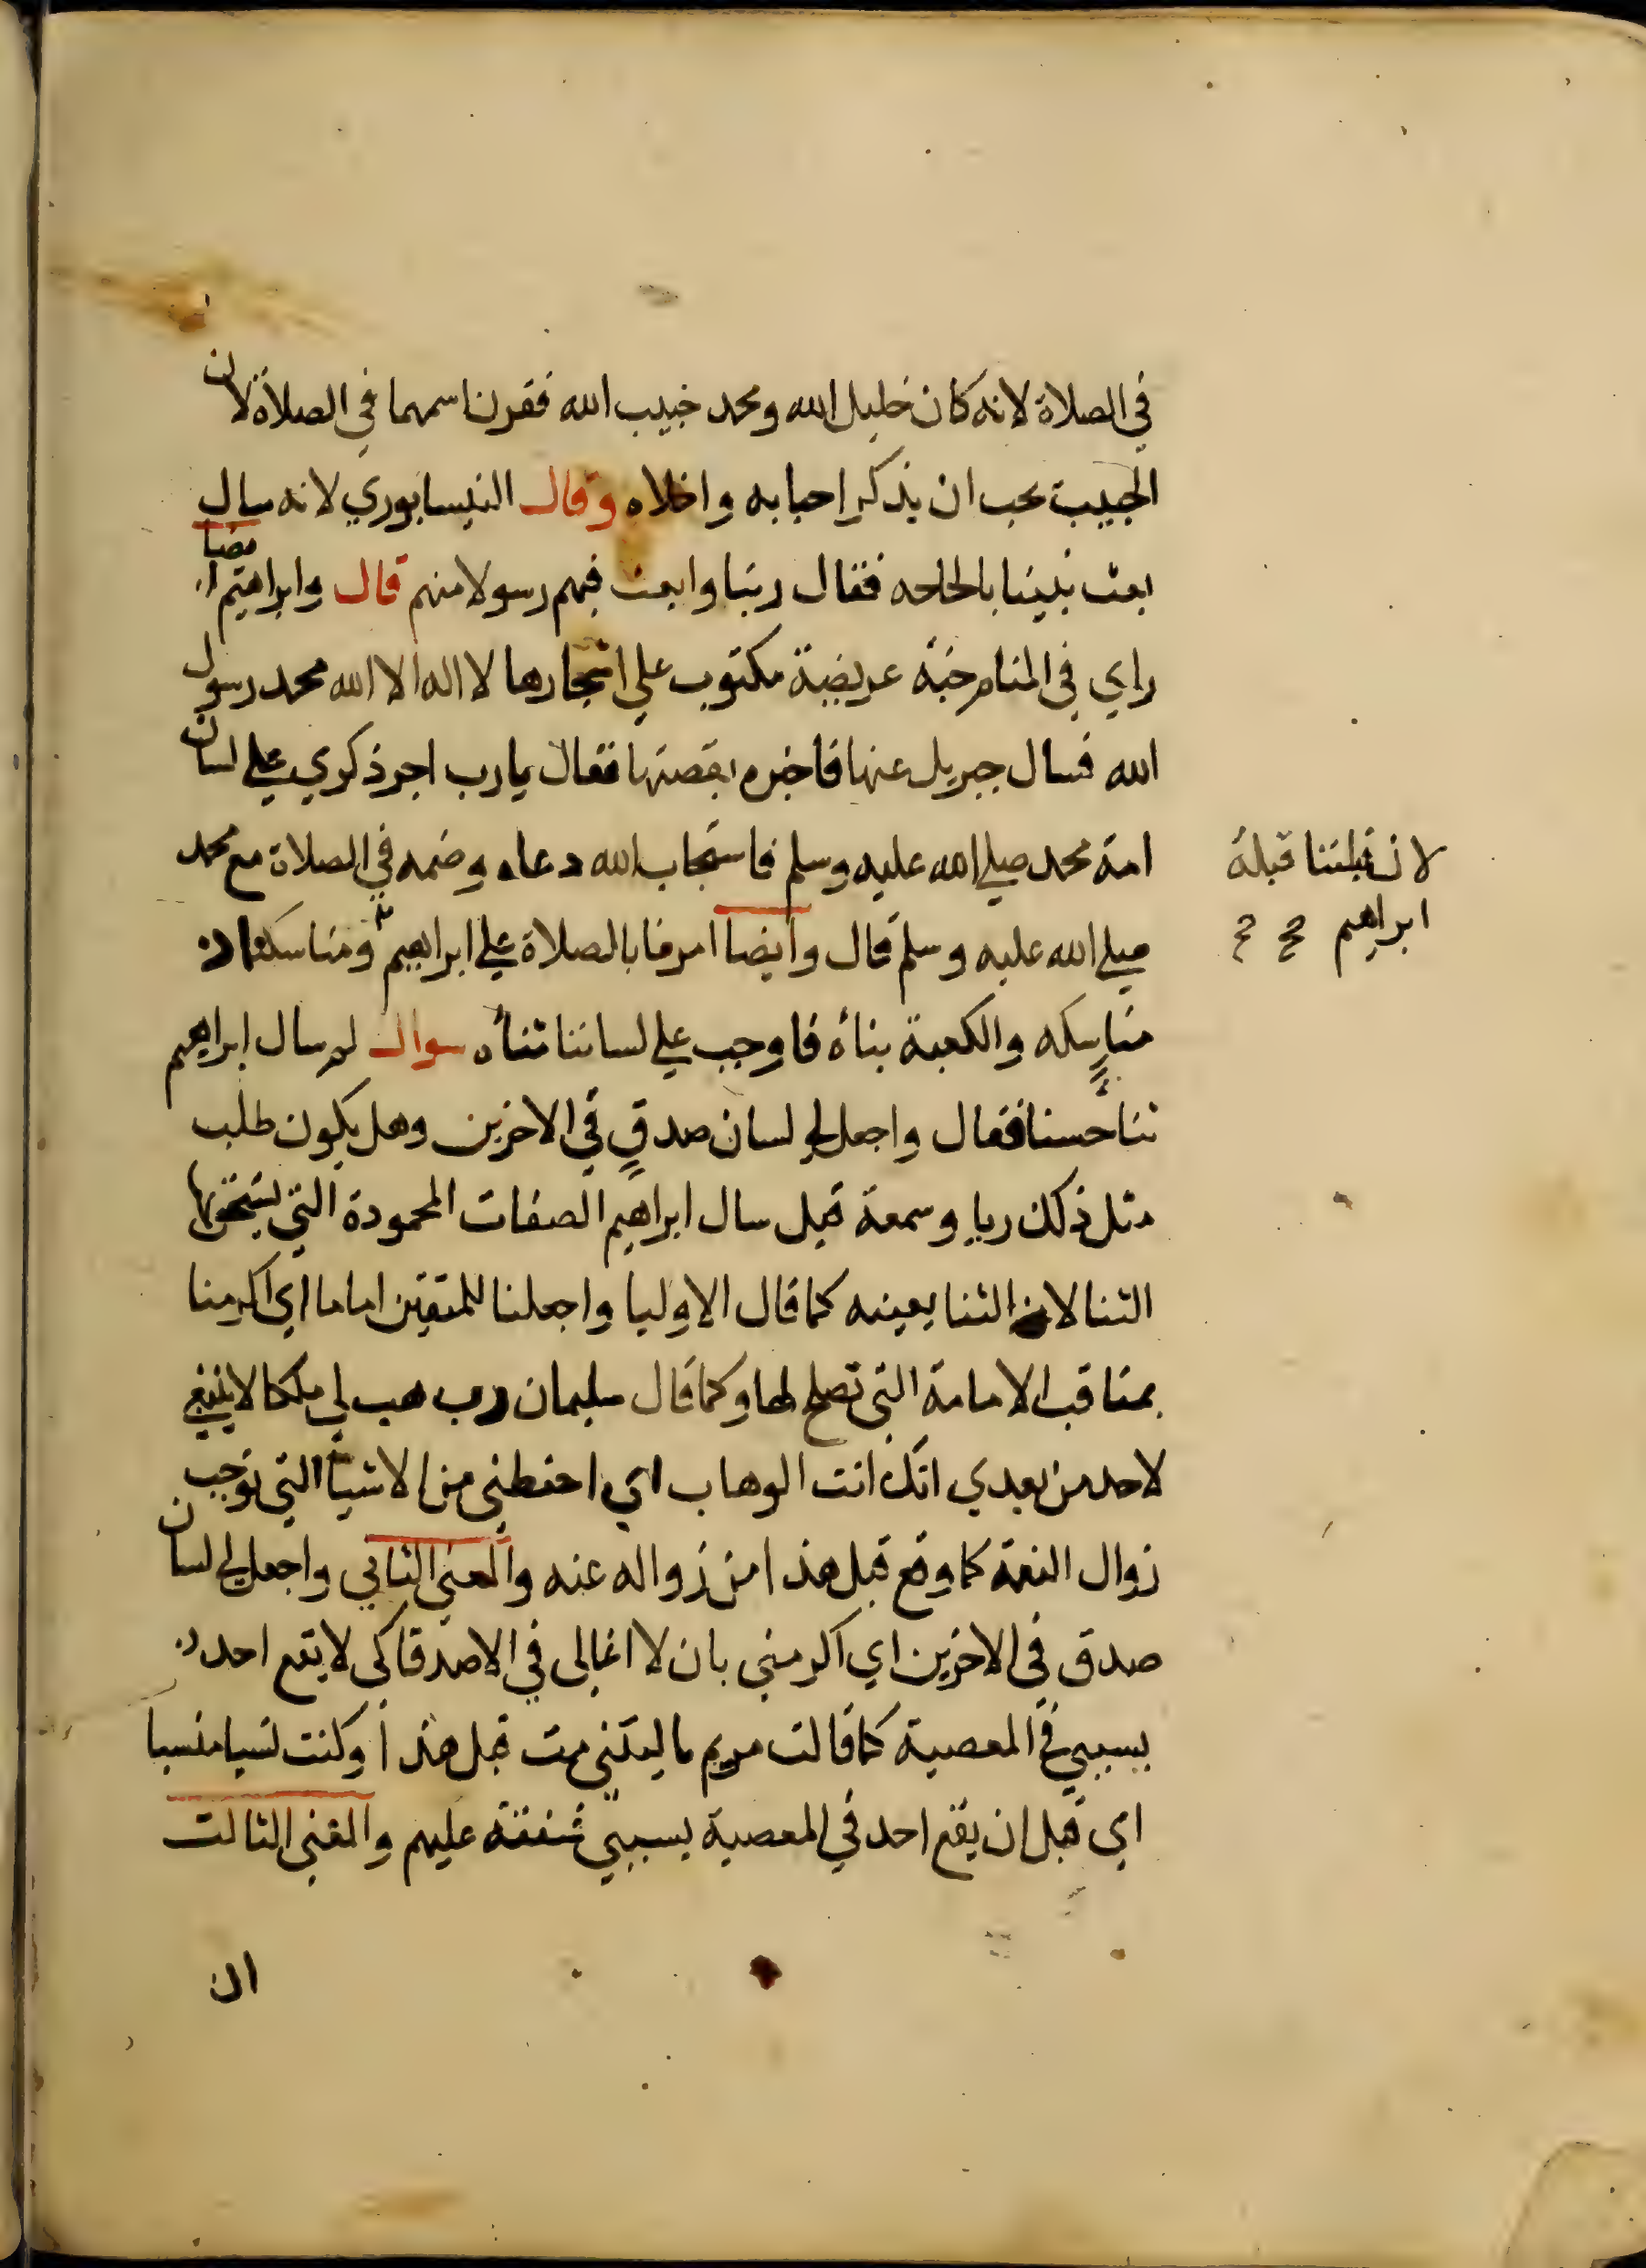 في الصلاة لانه كان خليل الله ومحمد حبيب الله فقرن اسمهما في الصلاة لان
الحبيب يحب ان يذكر احبابه واخلاه وقال النيسابوري لانه سال
بعث نبينا بالحلحه فقال ربنا وابعث فيهم رسولا منهم قال وابراهيم ايضا
راي في المنام جنة عريضة مكتوب علي اشجارها لا اله الا الله محمد رسول
الله فسال جبريل عنها فاخبره بقصتها فقال يارب اجر ذكري علي لسان
امة محمد صلي الله عليه وسلم فاستجاب الله دعاه وضمه في الصلاة مع محمد
صلي الله عليه وسلم قال وايضا امرنا بالصلاة علي ابراهيم ومناسكنا
لان قبلتنا قبلة
ابراهيم صح
مناسكه والكعبة بناؤه فاوجب علي لساننا ثناؤه سوال لم سال ابراهيم
ثنا حسنا فقال واجعل لي لسان صدق في الاخرين وهل يكون طلب
مثل ذلك ريا وسمعة قيل سال ابراهيم الصفات المحمودة التي يستحق بها
الثنا لان الثنا بعينه كما قال الاوليا واجعلنا للمتقين اماما اي اكرمنا
بمناقب الامامة التي تصلح لها وكما قال سليمان رب هب لي ملكا لا ينبغي
لاحد من بعدي انك انت الوهاب اي احفظني من الاشيا التي توجب
زوال النعمة كما وقع قبل هذا من زواله عنه والمعني الثاني واجعل لي لسان
صدق في الاخرين اي اكرمني بان لا اغالي في الاصدقا كي لا يقع احد
بسببي في المعصية كما قالت مريم ياليتني مت قبل هذا وكنت نسيا منسيا
اي قبل ان يقع احد في المعصية بسببي شفقة عليهم والمعني الثالث
ان